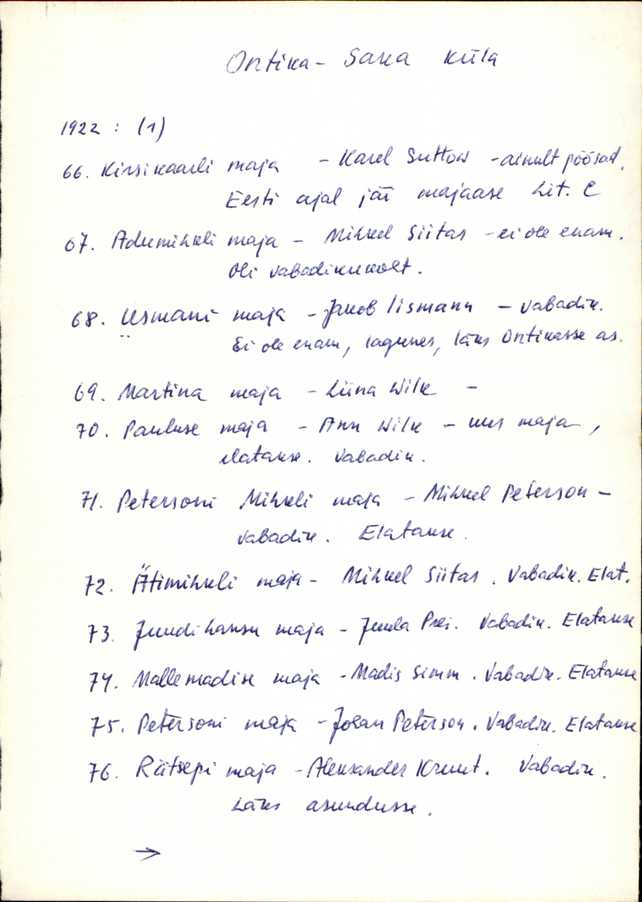 Ontika - Saka küla
1922 : (1)
66. Kirsikaarli maja - Karel Suttow - ainult põõsad.
Eesti ajal jäi majaase Lit. C
67. Adumihkli maja - Mihkel Siitas - ei ole enam.
Oli vabadikukoht.
68. Üsmani maja - Jakob Iismann - vabadik.
Ei ole enam, lagunes, läks Ontikasse as.
69. Martina maja - Liina Wilk -
70. Pauluse maja - Ann Wilk - uus maja,
elatakse. Vabadik.
71. Petersoni Mihkli maja - Mihkel Peterson -
vabadik. Elatakse.
72. Ätimihkli maja - Mihkel Siitas. Vabadik. Elat.
73. Juudihansu maja - Juula Vabadik. Elatakse
74. Mallemadise maja - Madis Simm. Vabadik. Elatakse
75. Petersoni maja - Johan Peterson. Vabadik. Elatakse
76. Rätsepi maja - Aleksander Kruut. Vabadik.
Läks asundusse.
→